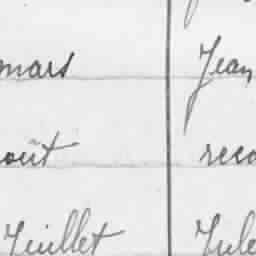 mars Jean
août
Juillet Jule